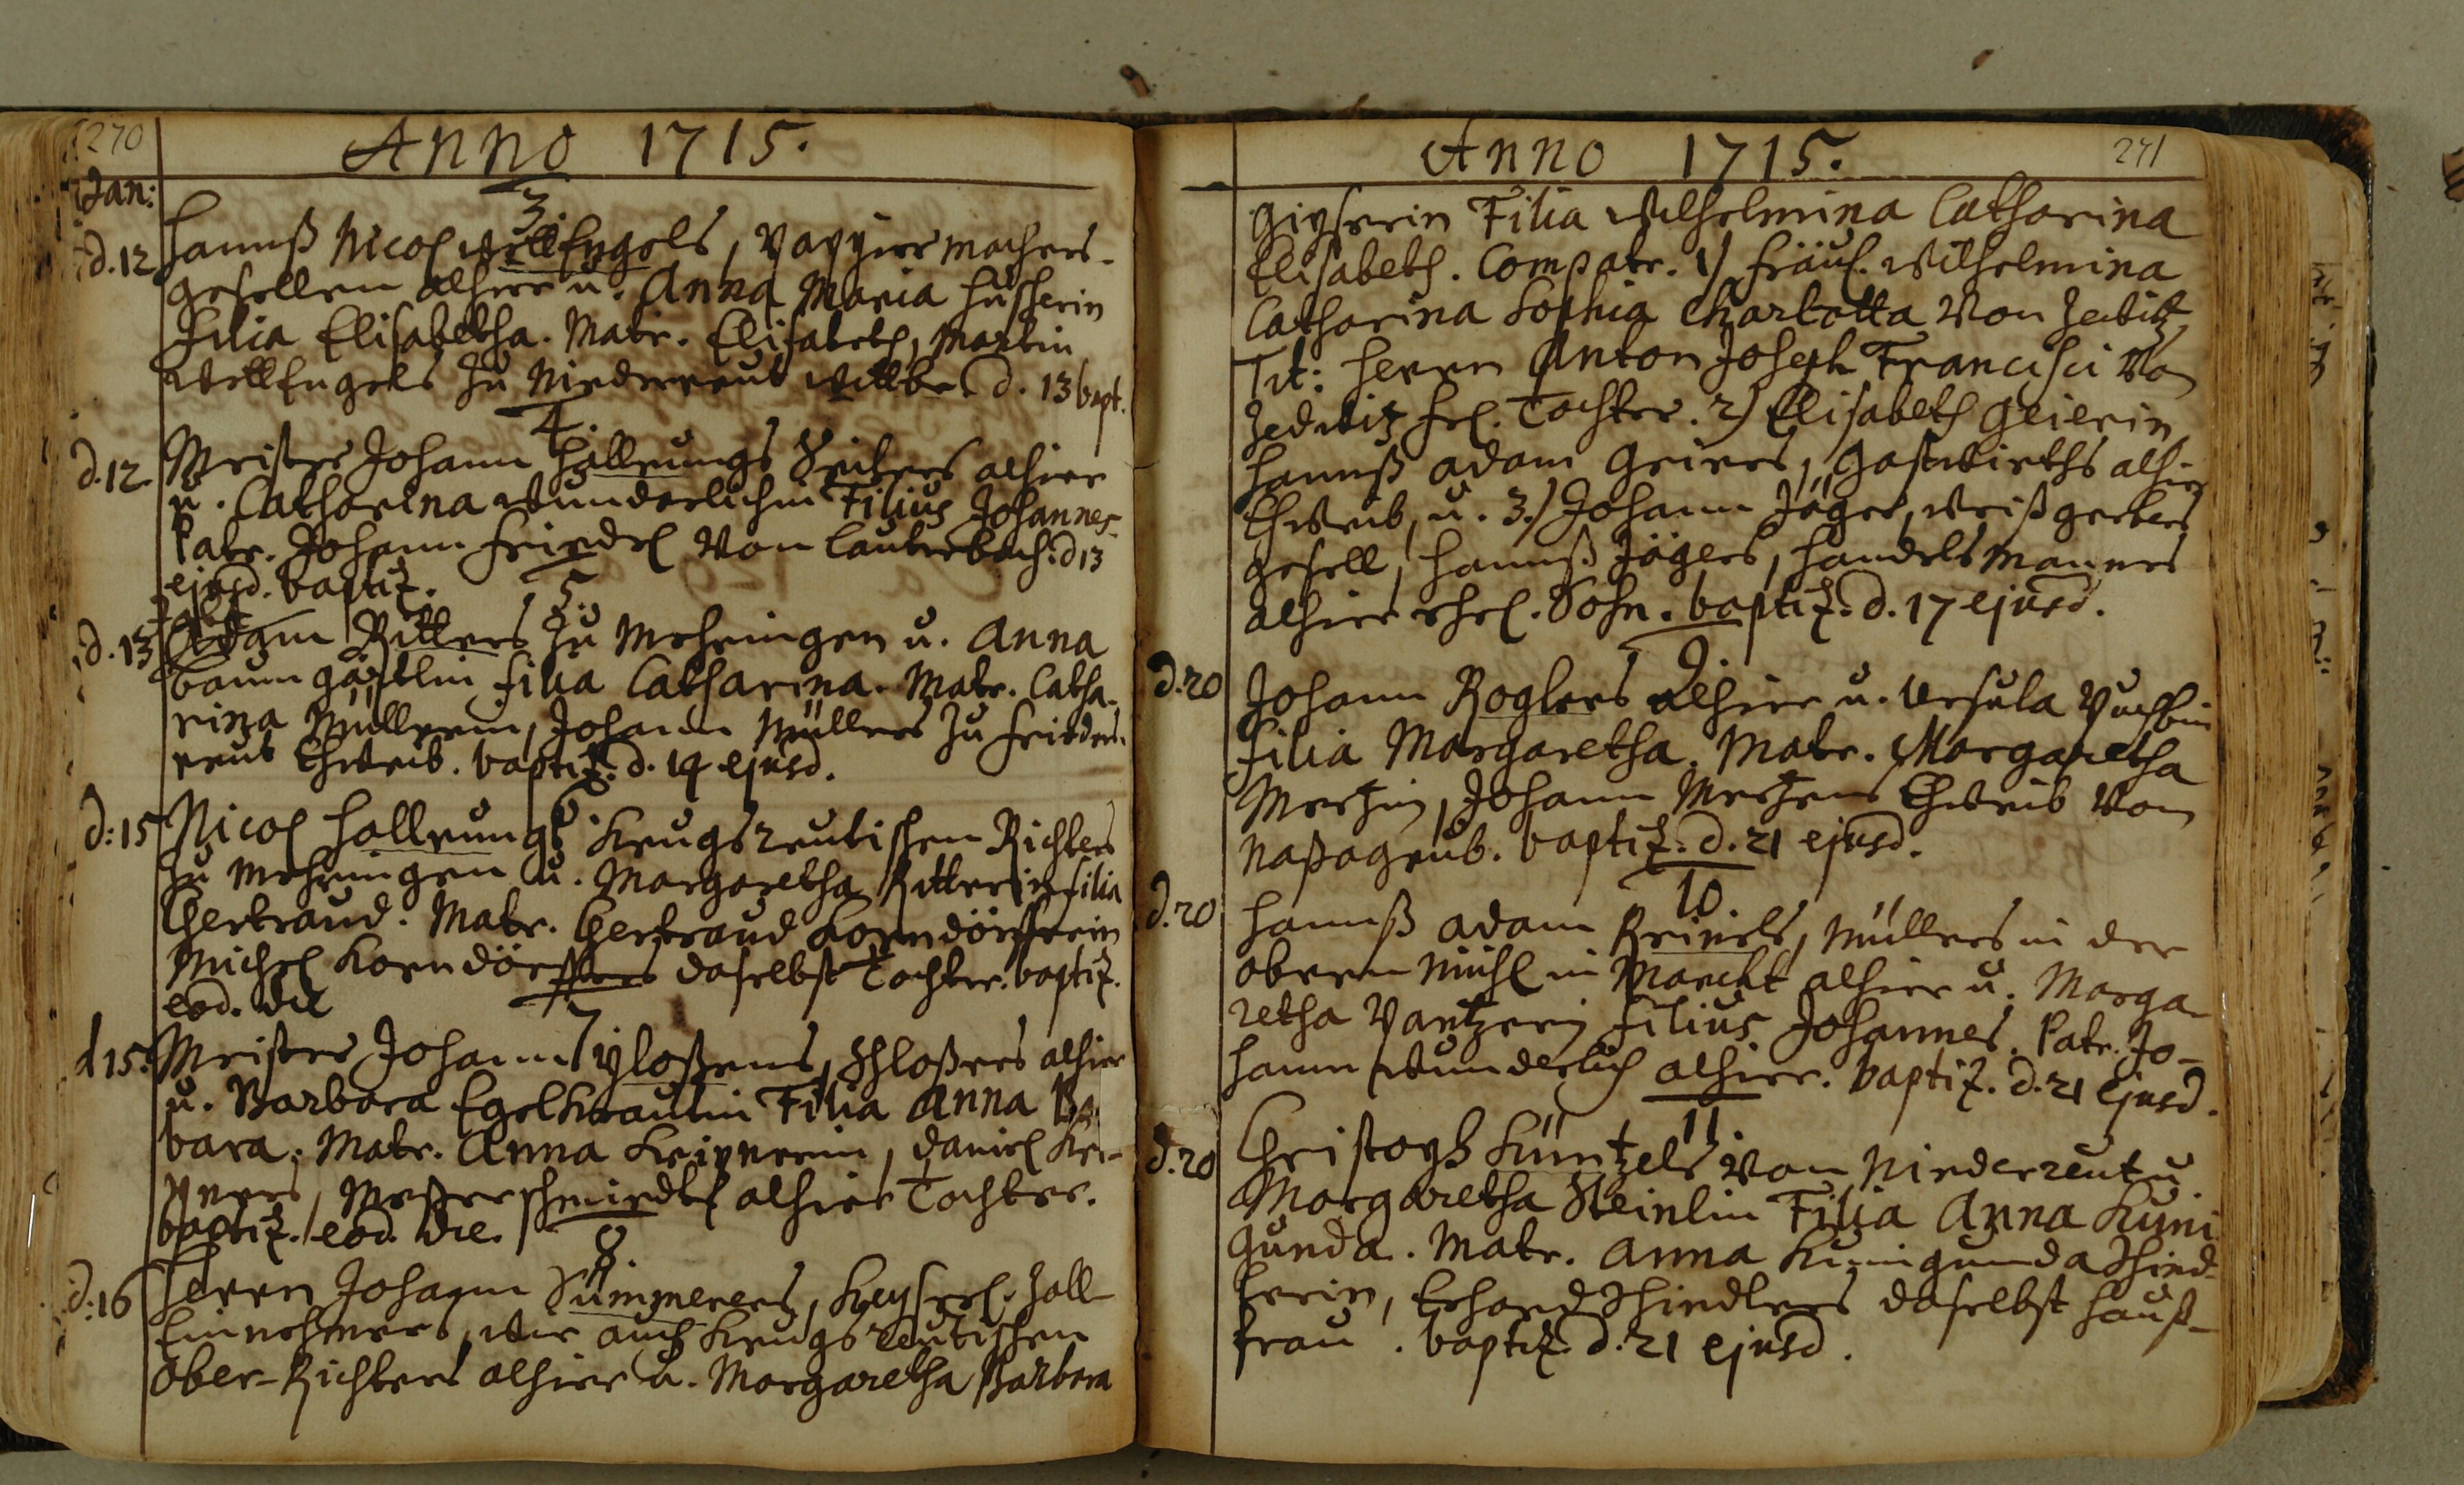 270
Anno 1715.
Jan:
3.
d. 12 Hannß Nicol Wellfugels, Pappiermachers-
gesellen alhier u. Anna Maria Huscherin
Filia Elisabetha. Matr. Elisabeth, Martin
Wellfugels zu Niederreut Wittbe. d. 13 bapt.
4.
d. 12. Meister Johann Hallrungs Webers alhier
u. Catharina Wunderlichin Filius Johannes
Patr. Johann Friedel von Lauterbach: d 13
ejusd. baptiz.
5.
d. 13 Adam Ritters zu Mehringen u. Anna
Baumgärtlin filia Catharina. Matr. Catha-
rina Müllerin, Johann Müllers zu Frieders-
reut Eheweib. baptiz. d. 14 ejusd.
6.
d: 15 Nicol Hallrungs Krugsreutischen Richters
zu Mehringen u. Margaretha Ritterin filia
Gertraud. Matr. Gertraud Korndörfferin
Michel Korndörffers daselbst Tochter. baptiz.
eod. die
7
d 15. Meister Johann Ploßens, Schloßers alhier
u. Barbara Egelkrautin Filia Anna Bar
bara. Matr. Anna Keipnerin, Daniel Kei-
pners, Meßerschmiedts alhier Tochter.
baptiz. eod. die.
8
d: 16 Herrn Johann Sümmerers, Keyserl. Zoll-
Einnehmers, wie auch Krugsreutischen
Ober-Richters alhier u. Margaretha Barbara
Anno 1715.
271
Gipserin Filia Wilhelmina Catharina
Elisabeth. Compatr. 1) Fräul. Wilhelmina
Catharina Sophia Charlotta von Zedtwitz
Tit: Herrn Anton Joseph Francisci von
Zedwitz Frl. Tochter. 2) Elisabeth Geierin
Hannß Adam Geiers, Gastwirths alhier
Eheweib, u. 3.) Johann Jäger, Weißgerbers
gesell, Hannß Jägers, Handelsmannes
alhier ehel. Sohn. baptiz. d. 17 ejusd.
9.
d. 20 Johann Roglers alhier u. Ursula Puchbin
filia Margaretha. Matr. Margaretha
Merzin, Johann Merzens Eheweib von
Naßagrub. baptiz. d. 21 ejusd.
10
d. 20 Hannß Adam Reinels, Müllers in der
obern Mühl in Marckt alhier u. Marga-
retha Pantzerin filius Johannes. Patr. Jo-
hann Wunderlich alhier. baptiz. d. 21 ejusd.
11.
d. 20 Christoph Küntzels von Niederreut u
Margaretha Steinlin Filia Anna Kuni
gunda. Matr. Anna Kunigunda Schind-
lerin, Erhard Schindlers daselbst Hauß-
frau. baptiz. d. 21 ejusd.